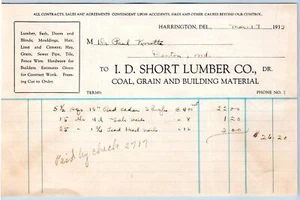 ALL CONTRACTS, SALES AND AGREEMENTS CONTINGENT UPON ACCIDENTS, FIRES AND OTHER CAUSES BEYOND OUR CONTROL.
HARRINGTON, DEL., Mar 17 193
Lumber, Sash, Doors and
Blinds, Mouldings, Hair,
Lime and Cement, Hay,
Grain, Sewer Pipe, Tile,
Fence Wire, Hardware for
Builders. Estimates Given
for Contract Work. Fram-
ing Cut to Order.
M Paul
Denton, Md.
TO I. D. SHORT LUMBER CO., DR.
COAL, GRAIN AND BUILDING MATERIAL
TERMS: PHONE
18" Red Cedar 22.00
15 lbs 4d nails 8 1.20
25 Head nails 12 3.00
$26.20
Paid by check 2717